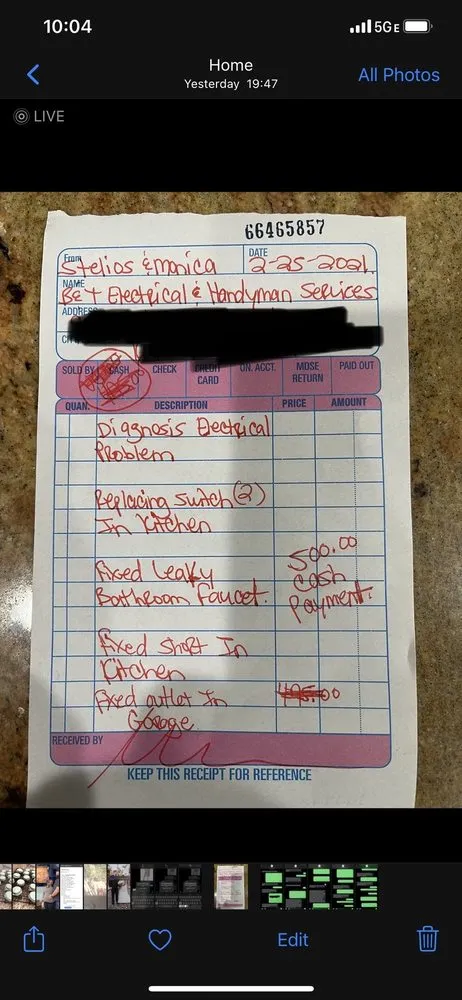 10:04
5GE
Home
Yesterday 19:47
All Photos
LIVE
66465857
From
Stelios & Monica
DATE
2-25-2021
NAME
B&T Electrical & Handyman Services
ADDRESS
SOLD BY CASH CHECK CREDIT CARD ON. ACCT. MDSE RETURN PAID OUT
QUAN. DESCRIPTION PRICE AMOUNT
Diagnosis Electrical
Problem
Replacing switch (2)
In Kitchen
500.00
Cash
Payment.
Fixed Leaky
Bathroom Faucet.
Fixed short In
Kitchen
Fixed outlet In
Garage
495.00
RECEIVED BY
KEEP THIS RECEIPT FOR REFERENCE
Edit